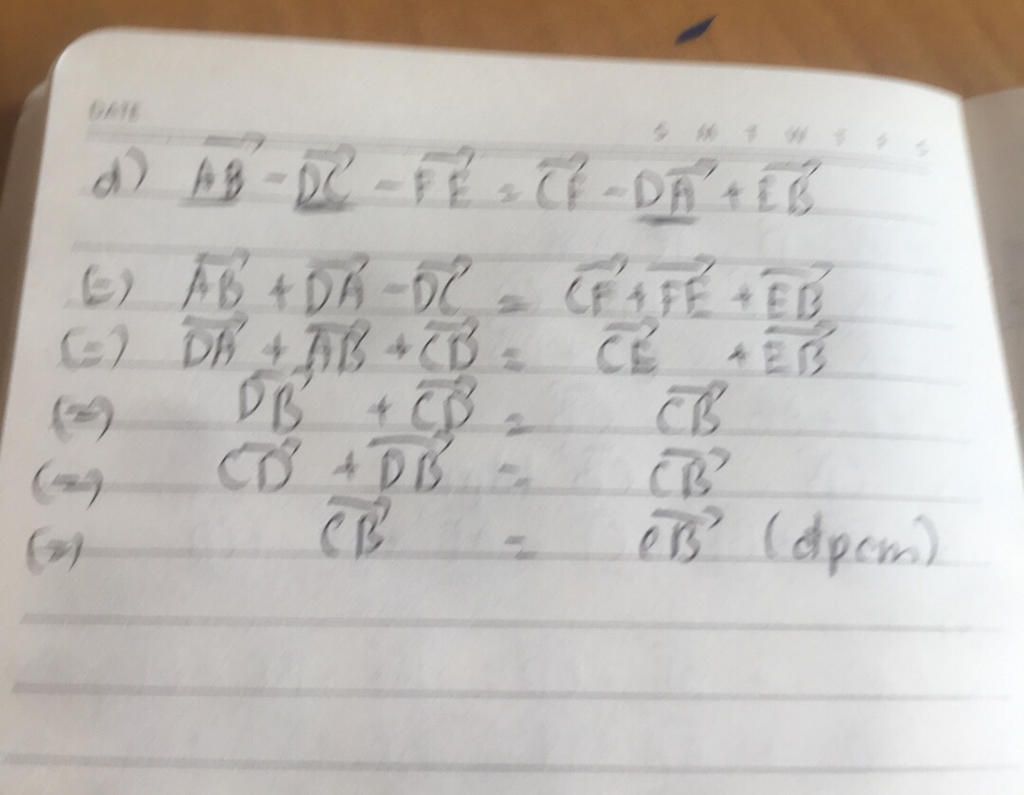 DATE
S M T W T F S
d) AB⃗ - DC⃗ - FE⃗ = CF⃗ - DA⃗ + EB⃗
(=) AB⃗ + DA⃗ - DC⃗ = CF⃗ + FE⃗ + EB⃗
(=) DA⃗ + AB⃗ + CD⃗ = CE⃗ + EB⃗
(=) DB⃗ + CD⃗ = CB⃗
(=) CD⃗ + DB⃗ = CB⃗
(=) CB⃗ = CB⃗ (dpcm)